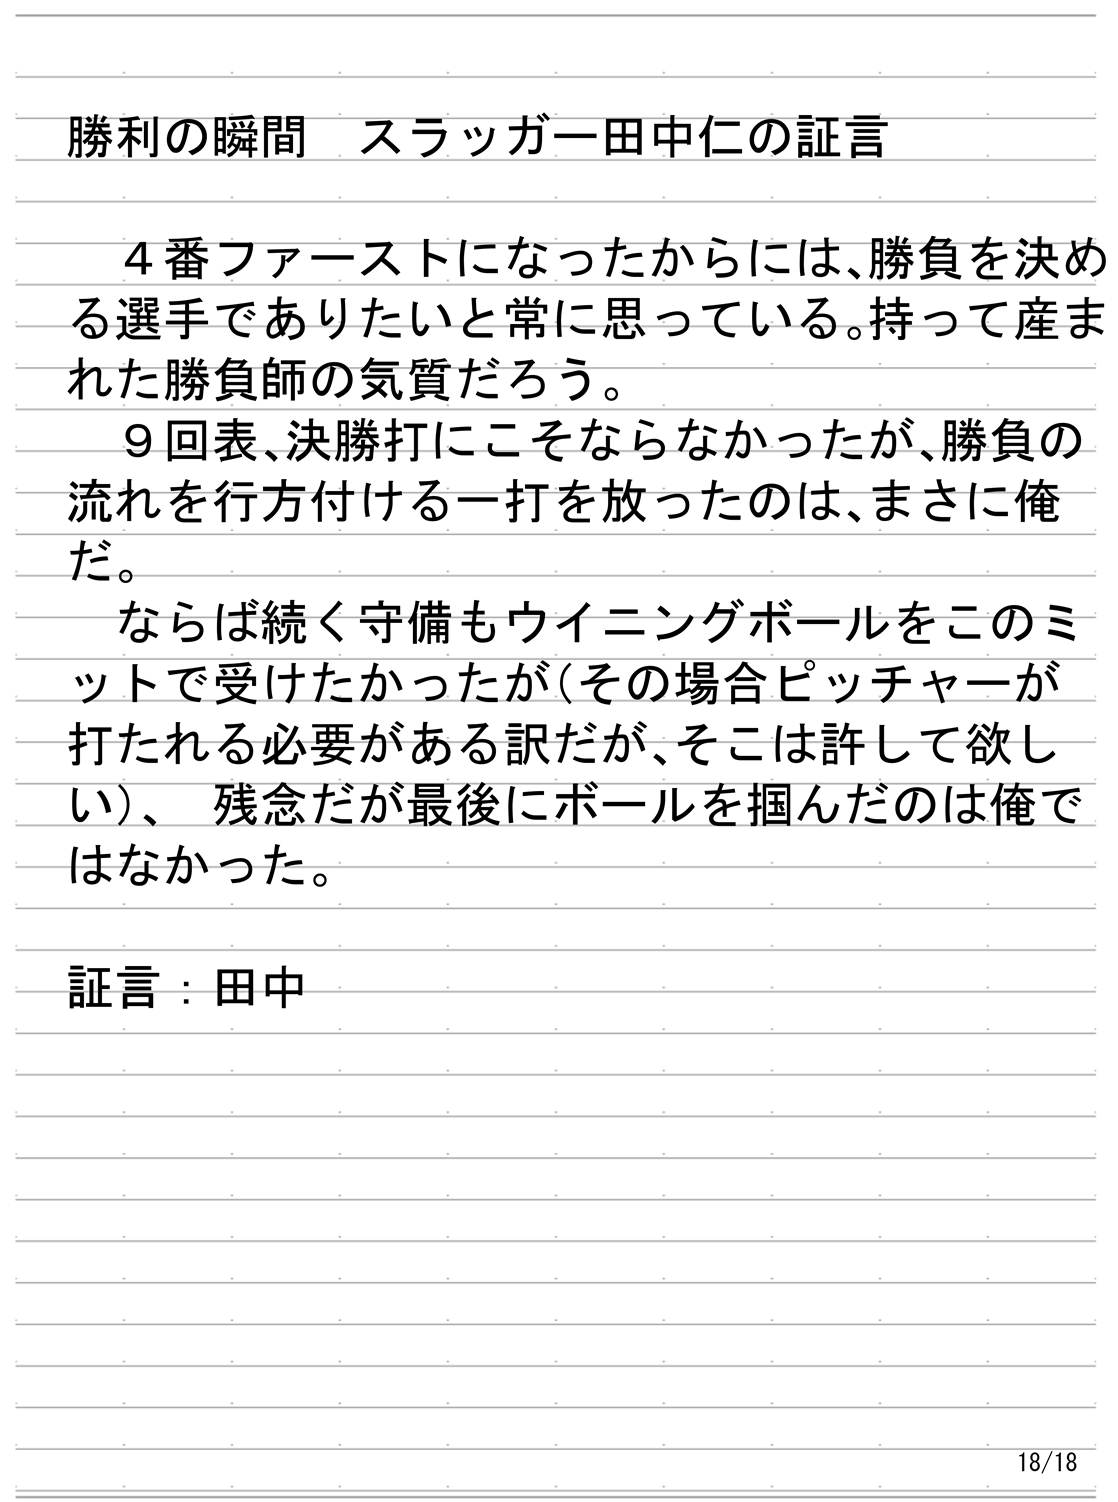 勝利の瞬間　スラッガー田中仁の証言
　４番ファーストになったからには、勝負を決め
る選手でありたいと常に思っている。持って産ま
れた勝負師の気質だろう。
　９回表、決勝打にこそならなかったが、勝負の
流れを行方付ける一打を放ったのは、まさに俺
だ。
　ならば続く守備もウイニングボールをこのミ
ットで受けたかったが（その場合ピッチャーが
打たれる必要がある訳だが、そこは許して欲し
い）、　残念だが最後にボールを掴んだのは俺で
はなかった。
証言：田中
18/18